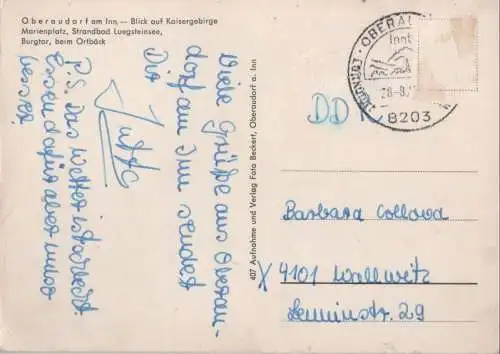 Oberaudorf am Inn, — Blick auf Kaisergebirge
Marienplatz, Strandbad Luegsteinsee,
Burgtor, beim Ortbäck
Viele Grüße aus Oberau-
dorf am Inn sendet
Dir
Jutta
P.S. Das Wetter ist schlecht.
Essen dafür aber umso
besser
407 Aufnahme und Verlag Foto Beckert, Oberaudorf a. Inn
8203
DD
Barbara Collova
X 4101 Wallwitz
Leninstr. 29